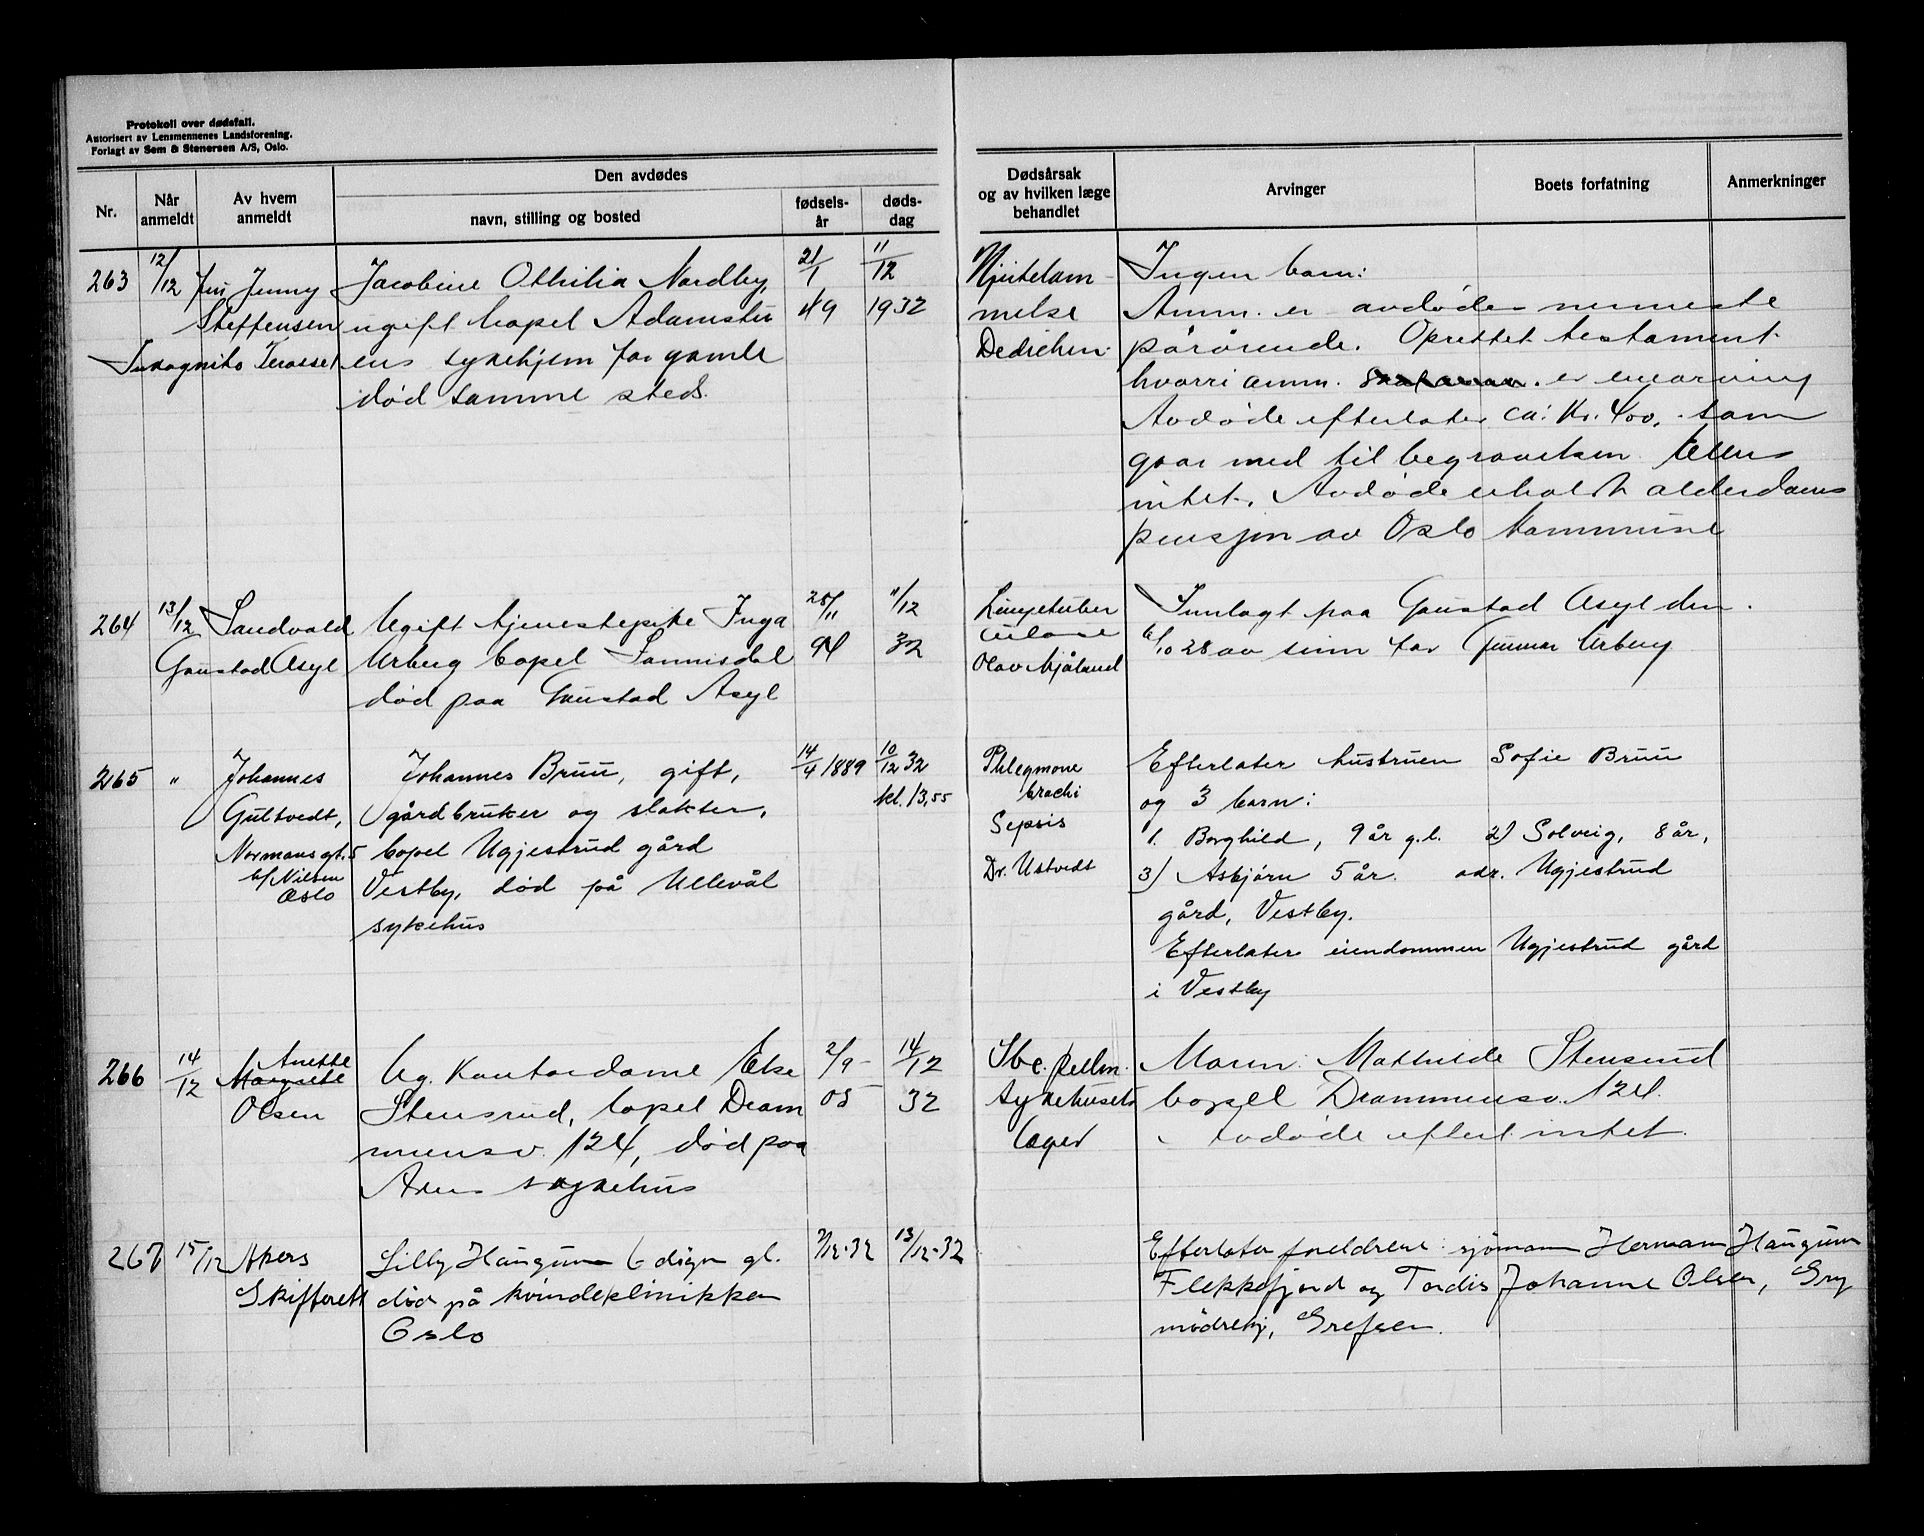 Protokoll over dødsfall.
Autorisert av Lensmennenes Landsforening.
Forlagt av Sem & Stenersen A/S, Oslo.
Nr.
Når anmeldt
Av hvem anmeldt
Den avdødes
navn, stilling og bosted
fødsels-år
døds-dag
Dødsårsak
og av hvilken læge
behandlet
Arvinger
Boets forfatning
Anmerkninger
263 12/12 Jenny Steffensen
Jacobine Othilia Nordby,
ugift bopel Adamstu
ens sykehjem for gamle
død samme sted.
21/1 49
11/12 1932
Hjertelam
melse
Dedichen
Ingen barn:
Anm. er avdødes nermeste
pårørende. Oprettet testament
hvori anm. er enearving
Avdøde efterlater ca: Kr. 400. som
gaar med til begravelsen. Ellers
intet. Avdøde erholdt alderdoms
pensjon av Oslo Kommune
264 13/12 Sandvold
Gaustad Asyl
Ugift tjenestepike Inga
Urberg bopel Sannisdal
død paa Gaustad Asyl
28/11 94
11/12 32
Lungetuber
culose
Olav Mjåland
Innlagt paa Gaustad Asyl den
6/10 28 av sinn far Gunnar Urberg
265 " Johannes
Gultvedt,
Normansgt. 5
b/ Nilsen
Oslo
Johannes Bruu, gift,
gårdbruker og slakter,
bopel Ugjestrud gård
Vestby, død på Ullevål
sykehus
14/4 1889
10/12 32
kl. 13,55
Phlegmone
brachi
Sepsis
Dr. Ustvedt
Efterlater hustruen Sofie Bruu
og 3 barn:
1. Borghild, 9 år g.l. 2) Solveig, 8 år,
3) Asbjørn 5 år. adr. Ugjestrud
gård, Vestby.
Efterlater eiendommen Ugjestrud gård
i Vestby
266 14/12 Anette
Margrethe
Olsen
Ug. Kontordame Else
Stensrud, bopel Dram
mensv. 124, død paa
Akers sykehus
2/9-05
14/12 32
Tbc. pulm.
Sykehusets
læger
Moren: Mathilde Stensrud
bopel Drammensv. 124.
Avdøde efterl. intet.
267 15/12 Akers
Skifterett
Lilly Haugum 6 dager gl.
død på kvindeklinikken
Oslo
7/12-32
13/12-32
Efterlater foreldrene: sjømann Herman Haugum
Flekkefjord og Tordis Johanne Olsen, Gry
mødrehj, Grefsen.